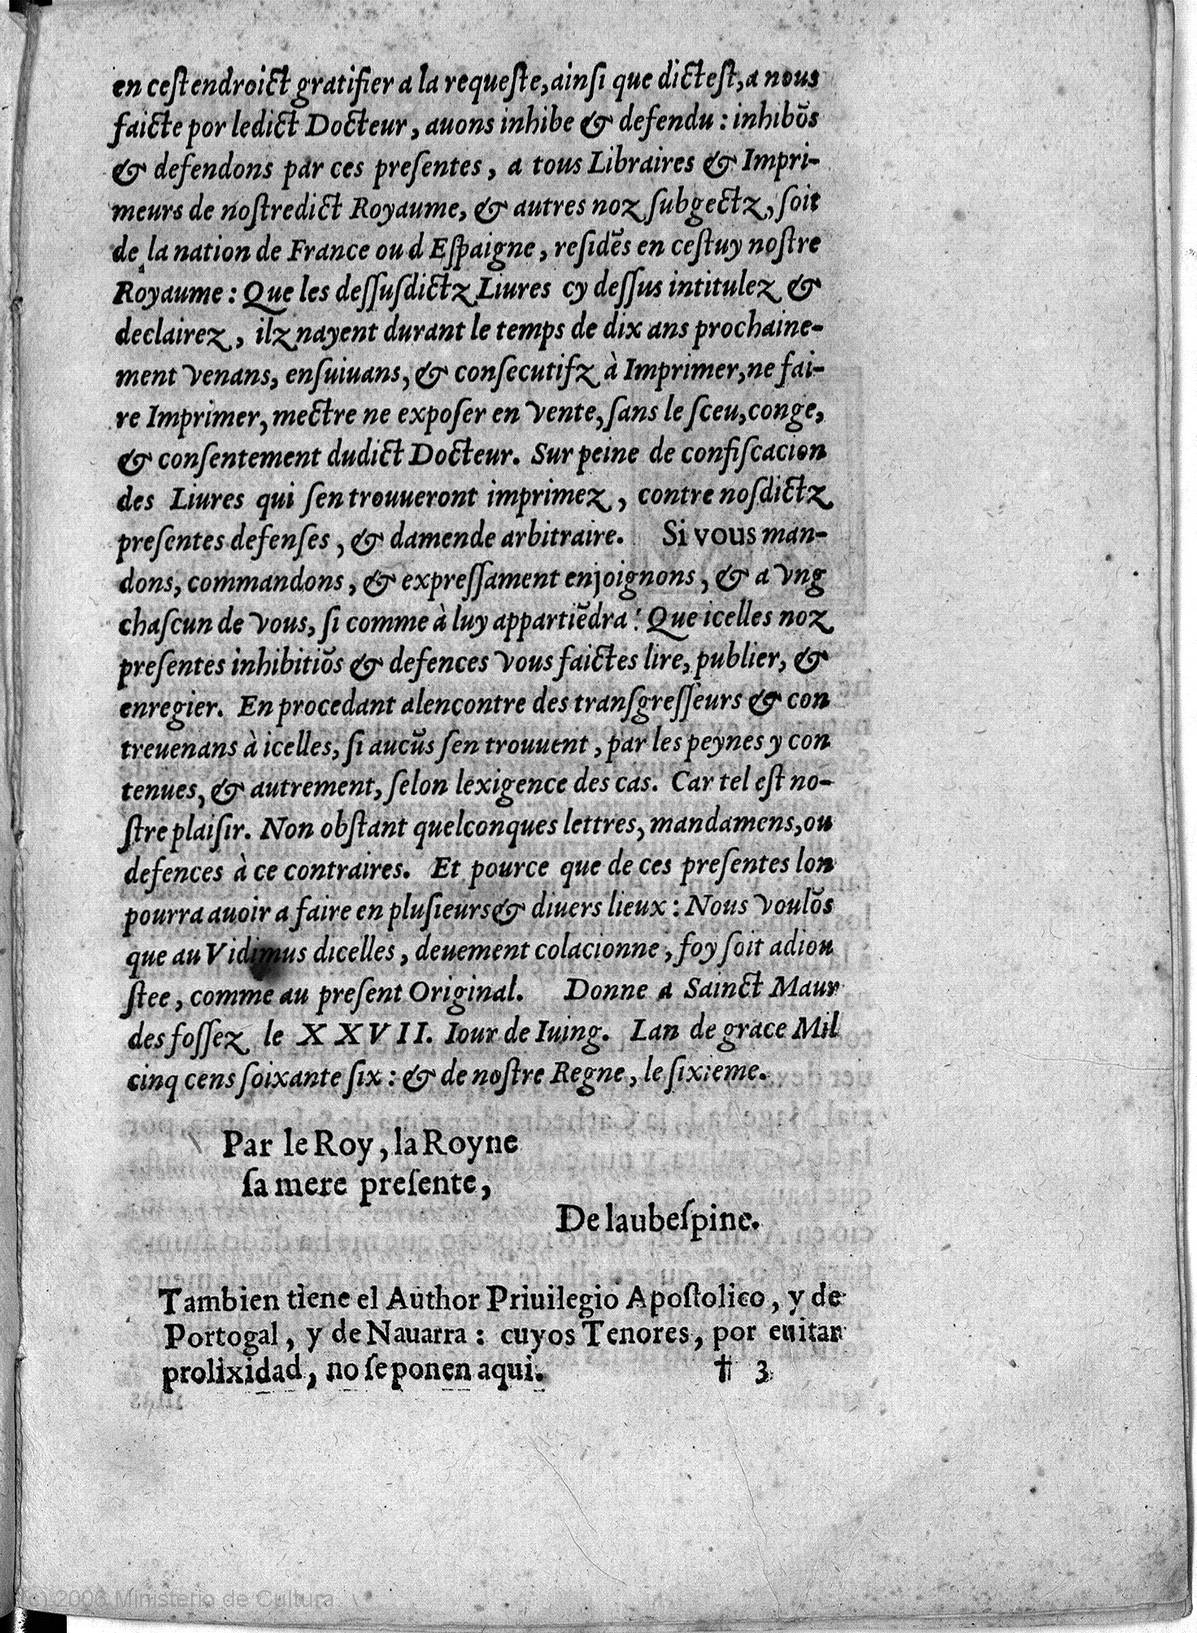 en ceſt endroict gratifier a la requeſte, ainſi que dict eſt, a nous
faicte por ledict Docteur, auons inhibe & defendu : inhibōs
& defendons par ces preſentes, a tous Libraires & Impri-
meurs de noſtredict Royaume, & autres noz ſubgectz, ſoit
de la nation de France ou d Eſpaigne, reſidēs en ceſtuy noſtre
Royaume : Que les deſſuſdictz Liures cy deſſus intitulez &
declairez, ilz nayent durant le temps de dix ans prochaine-
ment venans, enſuiuans, & conſecutifz à Imprimer, ne fai-
re Imprimer, mectre ne expoſer en vente, ſans le ſceu, conge,
& conſentement dudict Docteur. Sur peine de confiſcacion
des Liures qui ſen trouueront imprimez, contre noſdictz
preſentes defenſes, & damende arbitraire. Si vous man-
dons, commandons, & expreſſament enjoignons, & a vng
chaſcun de vous, ſi comme à luy appartiēdra : Que icelles noz
preſentes inhibitiōs & defences vous faictes lire, publier, &
enregier. En procedant alencontre des tranſgreſſeurs & con
treuenans à icelles, ſi aucūs ſen trouuent, par les peynes y con
tenues, & autrement, ſelon lexigence des cas. Car tel eſt no-
ſtre plaiſir. Non obſtant quelconques lettres, mandamens, ou
defences à ce contraires. Et pource que de ces preſentes lon
pourra auoir a faire en pluſieurs & diuers lieux : Nous voulōs
que au Vidimus dicelles, deuement colacionne, foy ſoit adiou
ſtee, comme au preſent Original. Donne a Sainct Maur
des foſſez le XXVII. Iour de Iuing. Lan de grace Mil
cinq cens ſoixante ſix : & de noſtre Regne, le ſixieme.
Par le Roy, la Royne
ſa mere preſente,
De laubeſpine.
Tambien tiene el Author Priuilegio Apoſtolico, y de
Portogal, y de Nauarra : cuyos Tenores, por euitar
prolixidad, no ſe ponen aqui. † 3
(c) 2006 Ministerio de Cultura